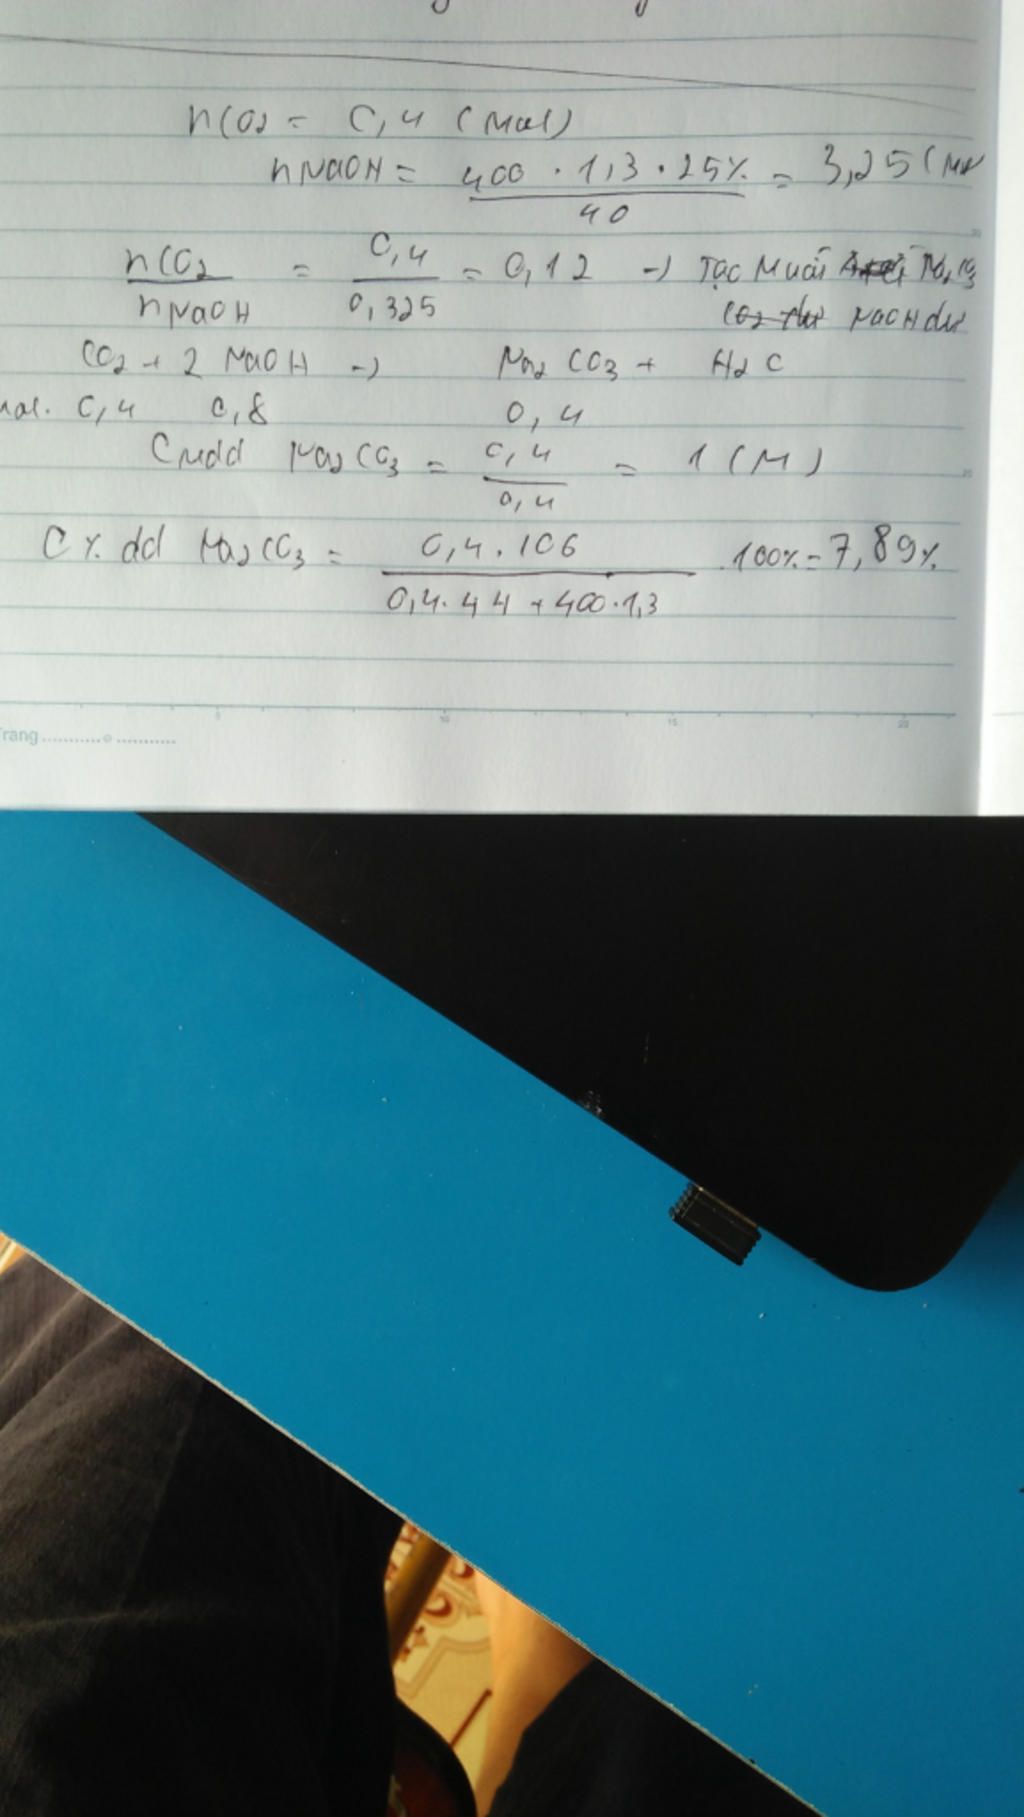 nCO2 = 0,4 (mol)
nNaOH = 400 . 1,3 . 25% / 40 = 3,25 (mol
nCO2 / nNaOH = 0,4 / 0,325 = 0,12 -> Tạo muối Na2CO3
CO2 dư NaOH dư
CO2 + 2 NaOH -> Na2CO3 + H2O
mol. 0,4 0,8 0,4
CMdd Na2CO3 = 0,4 / 0,4 = 1 (M)
C% dd Na2CO3 = 0,4 . 106 / 0,4 . 44 + 400 . 1,3 . 100% = 7,89%
5 10 15 20
Trang